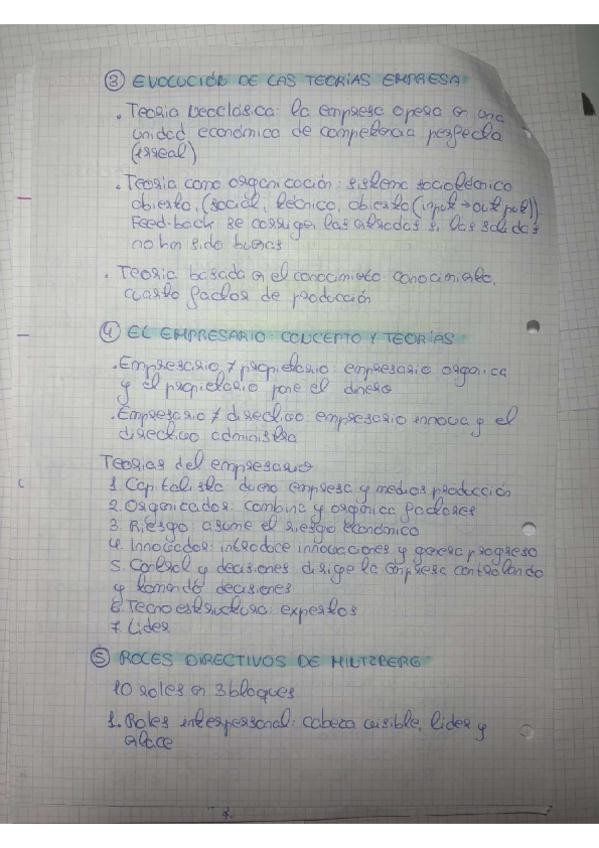 ③ EVOLUCIÓN DE LAS TEORÍAS EMPRESA
• Teoría Neoclásica: la empresa opera en una
unidad económica de competencia perfecta
(irreal)
• Teoría como organización: sistema sociotécnico
abierto, (social, técnico, abierto (input → output))
Feed-back se corrigen las entradas si las salidas
no han sido buenas
• Teoría basada en el conocimiento: conocimiento,
cuarto factor de producción
④ EL EMPRESARIO: CONCEPTO Y TEORÍAS
• Empresario ≠ propietario: empresario organiza
y el propietario pone el dinero
• Empresario ≠ directivo: empresario innova y el
directivo administra
Teorías del empresario
1. Capitalista: dueño empresa y medios producción
2. Organizador: combina y organiza factores
3. Riesgo: asume el riesgo económico
4. Innovador: introduce innovaciones y genera progreso
5. Control y decisiones: dirige la empresa controlando
y tomando decisiones
6. Tecnoestructura: expertos
7. Líder
⑤ ROLES DIRECTIVOS DE MINTZBERG
10 roles en 3 bloques
1. Roles interpersonal: cabeza visible, líder y
enlace